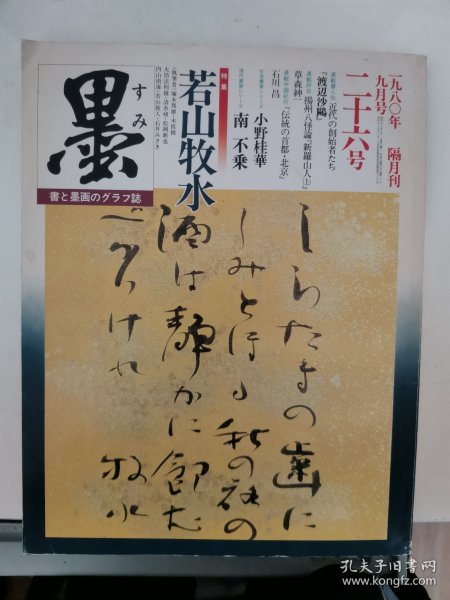 一九八〇年 隔月刊
九月号
二十六号
近代の創始者たち
『渡辺沙鷗』
揚州八怪論『新羅山人(上)』
草森紳一
連載中国紀行『伝統の首都・北京』
石川 昌
小野桂華
南 不乗
特集
若山牧水
すみ
墨
書と墨画のグラフ誌
しらたまの歯に
しみとほる秋の夜の
酒は静かに飲む
べかりけれ 牧水
孔夫子旧书网
www.kongfz.com